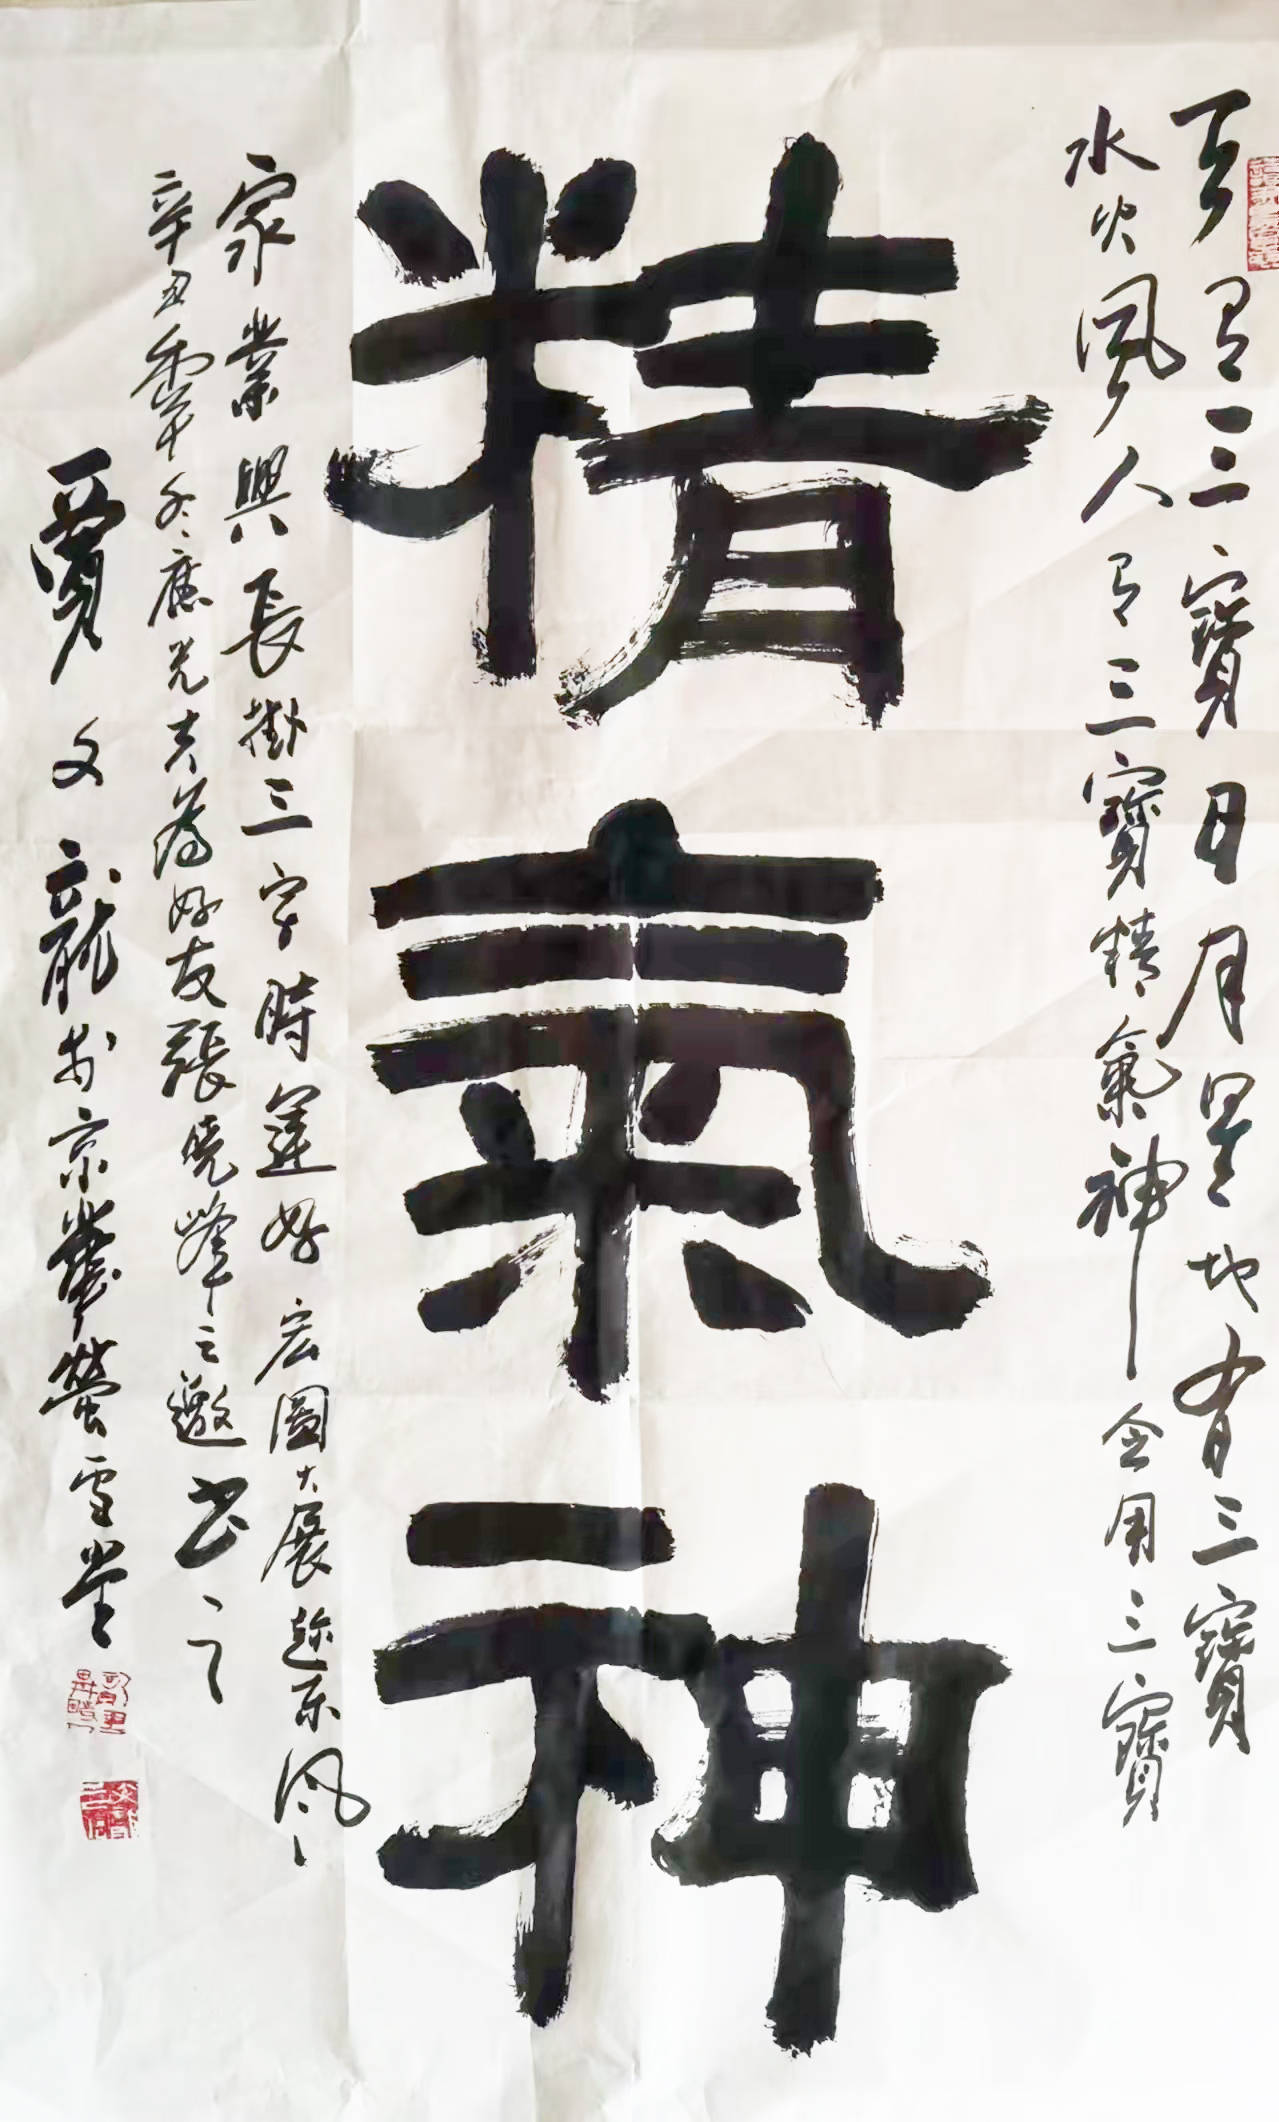 天有三寶日月星地有三寶
水火風人有三寶精氣神合用三寶
精氣神
家業興長掛三字時運好宏圖大展趁東風
辛丑年冬應光夫為好友張曉峰之邀書之
賈文龍於京華螢雪堂